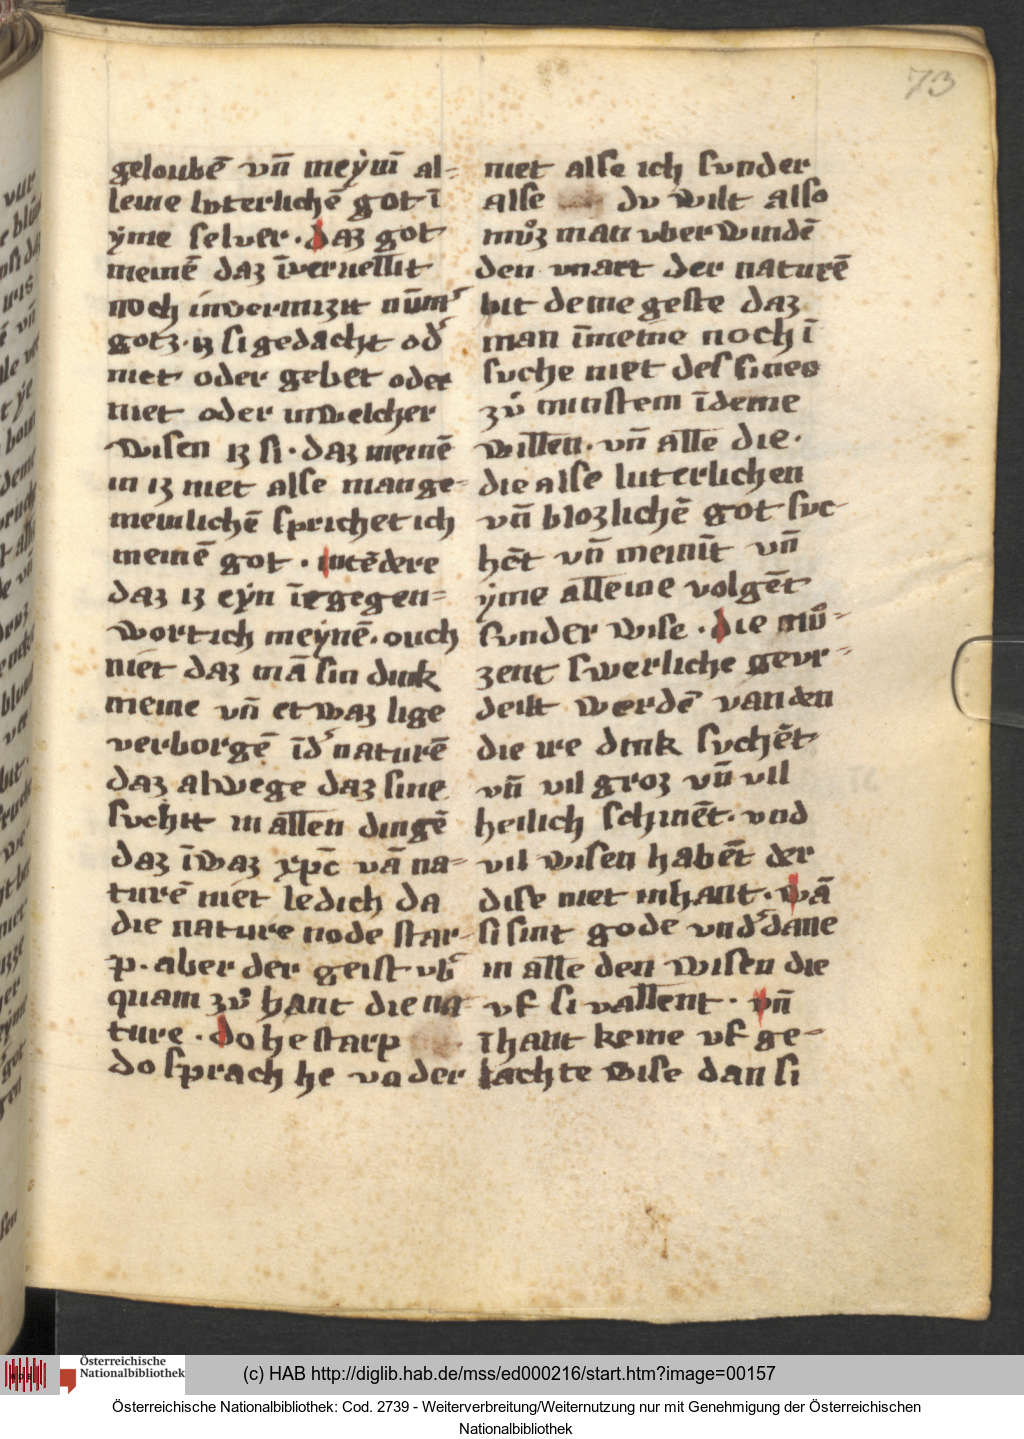 73
geloubē vñ meẏnī al-
leine lvterlichē got ī
ẏme selver · daz got
meinē daz īvernellit
noch invermizit nūm̾
gotz · iz si gedacht od̾
niet oder gebet oder
niet oder inwelcher
wisen iz si · daz meinē
in iz niet alse man ge-
meinlichē sprichet ich
meinē got · intēdere
daz iz eẏn īegegen-
wortich meẏnē. ouch
niet daz mā sin dink
meine vñ etwaz lige
verborgē īd̾ naturē
daz alwege daz sine
svchit in allen dingē
daz īwaz xp̄c vā na-
turē niet ledich da
die nature node star-
p. aber der geist vb̾
quam zv̊ hant die na-
ture · do he starp
do sprach he vader
niet alse ich svnder
alse dv wilt also
mv̊z man vberwindē
den vnart der naturē
bit deme geste daz
man īmeine noch ī
svche niet des sines
zv̊ minstem īdeme
willen. vñ alle die.
die alse luterlichen
vñ blozlichē got svc
hēt vñ meinīt vñ
ẏme alleine volgēt
svnder wise · die mv̊-
zent swerliche gevr-
deilt werdē van den
die ire dink svchēt
vñ vil groz vñ vil
heilich schinēt. vnd
vil wisen habēt der
dise niet inhant · wā
si sint gode vnd̾dane
in alle den wisen die
vf si vallent · vñ
īhant keine vf ge-
sachte wise dan si
Österreichische
Nationalbibliothek
(c) HAB http://diglib.hab.de/mss/ed000216/start.htm?image=00157
Österreichische Nationalbibliothek: Cod. 2739 - Weiterverbreitung/Weiternutzung nur mit Genehmigung der Österreichischen
Nationalbibliothek